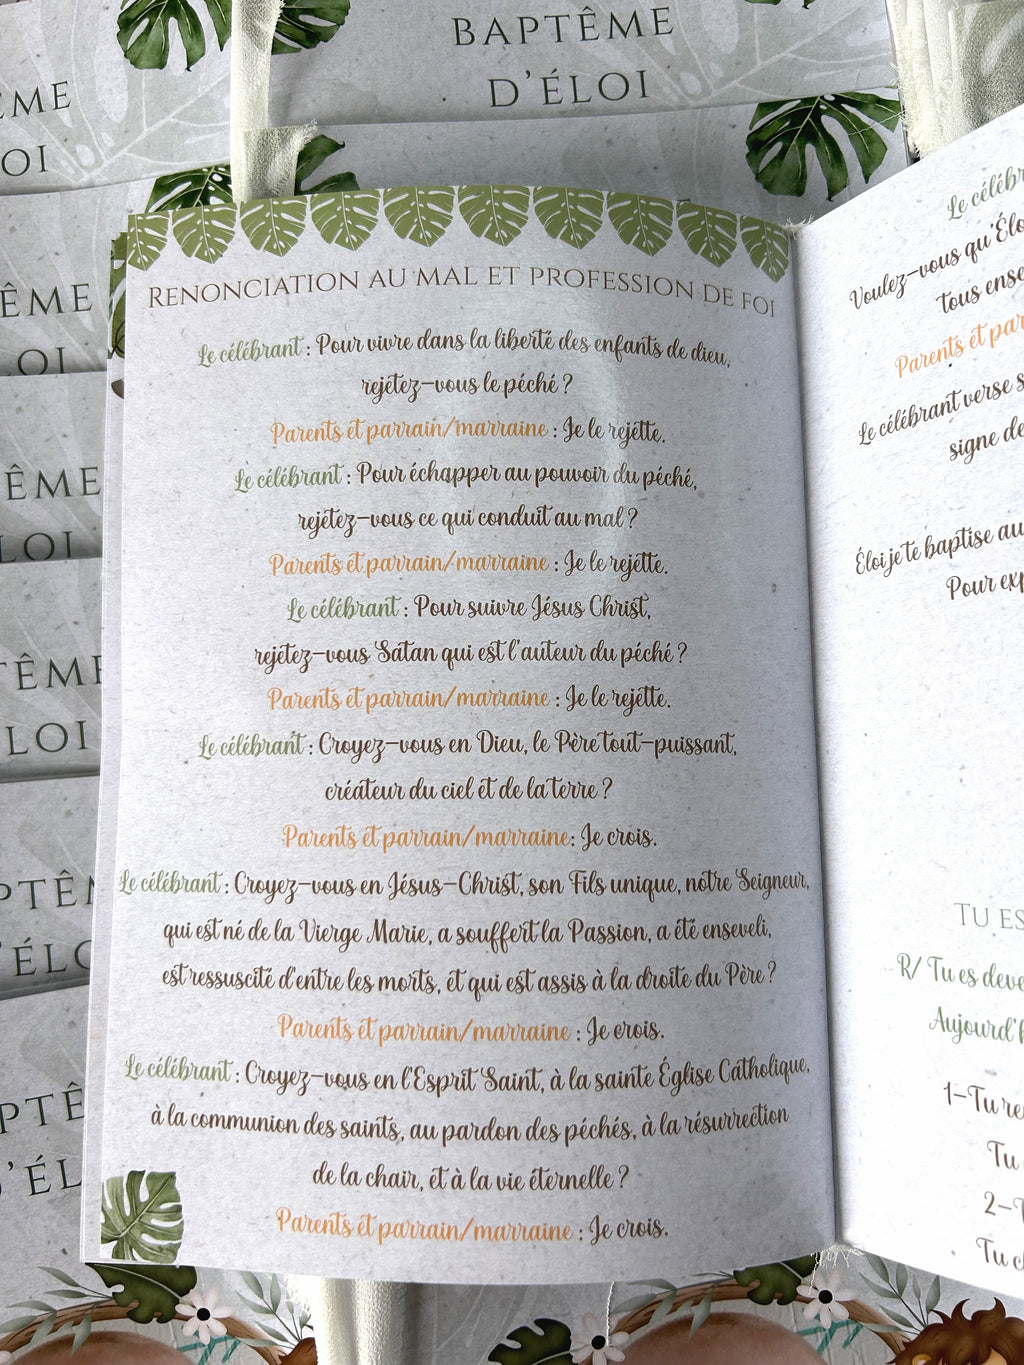 BAPTÊME
D'ÉLOI
ÊME
LOI
RENONCIATION AU MAL ET PROFESSION DE FOI
Le célébrant : Pour vivre dans la liberté des enfants de dieu,
rejetez-vous le péché ?
Parents et parrain/marraine : Je le rejette.
Le célébrant : Pour échapper au pouvoir du péché,
rejetez-vous ce qui conduit au mal ?
Parents et parrain/marraine : Je le rejette.
Le célébrant : Pour suivre Jésus Christ,
rejetez-vous Satan qui est l'auteur du péché ?
Parents et parrain/marraine : Je le rejette.
Le célébrant : Croyez-vous en Dieu, le Père tout-puissant,
créateur du ciel et de la terre ?
Parents et parrain/marraine : Je crois.
Le célébrant : Croyez-vous en Jésus-Christ, son Fils unique, notre Seigneur,
qui est né de la Vierge Marie, a souffert la Passion, a été enseveli,
est ressuscité d'entre les morts, et qui est assis à la droite du Père ?
Parents et parrain/marraine : Je crois.
Le célébrant : Croyez-vous en l'Esprit Saint, à la sainte Église Catholique,
à la communion des saints, au pardon des péchés, à la résurrection
de la chair, et à la vie éternelle ?
Parents et parrain/marraine : Je crois.
Le céléb
Voulez-vous qu'Élo
tous ense
Parents et par
Le célébrant verse s
signe de
Éloi je te baptise au
Pour exp
TU ES
R/ Tu es deve
Aujourd'h
1-Tu re
Tu
2-T
Tu c